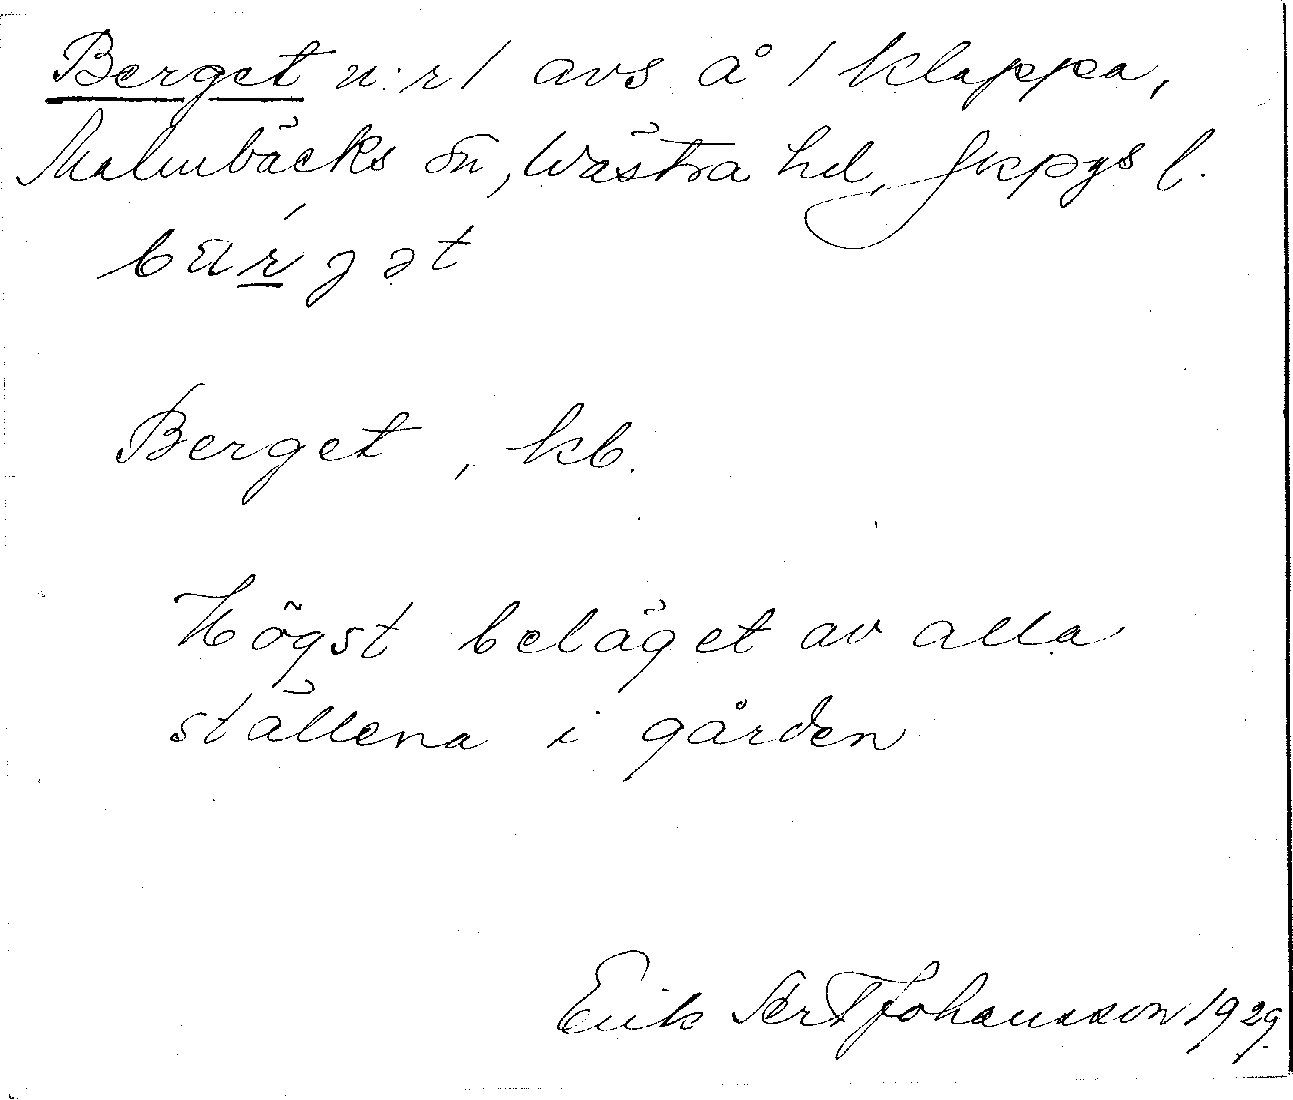 Berget n:r 1 avs å 1 Klappa,
Malmbäcks sn, Västra hd, Jkpgs l.
bäŕjət
Berget, kb.
Högst beläget av alla
ställena i gården
Erik Johansson 1929.